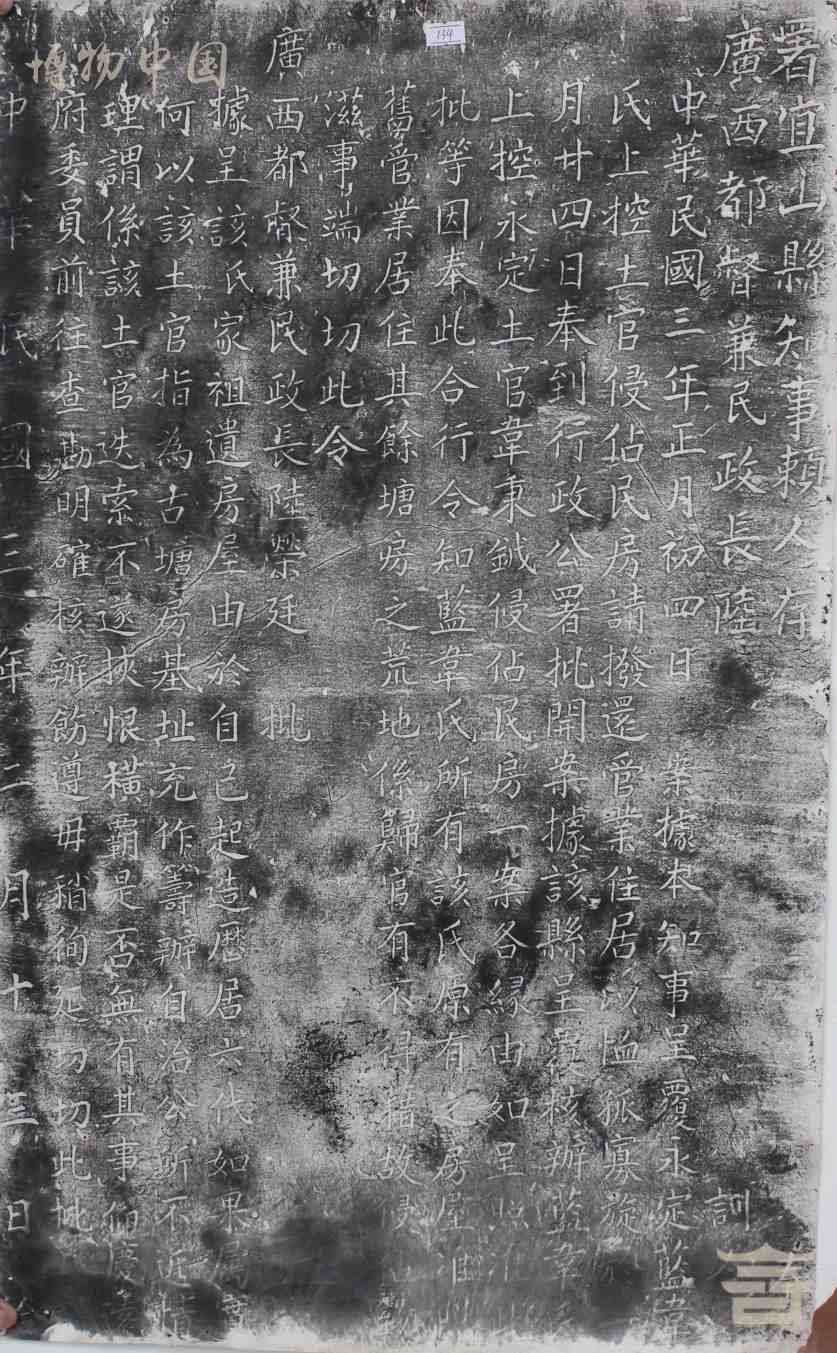 博物中国
134
署宜山縣知事賴人存
廣西都督兼民政長陸 訓
中華民國三年正月初四日 案據本知事呈覆永定藍韋
氏上控土官侵佔民房請撥還管業住居以恤孤寡旋
月廿四日奉到行政公署批開案據該縣呈覆核辦藍韋氏
上控永定土官韋秉鉞侵佔民房一案各緣由如呈照准此
批等因奉此合行令知藍韋氏所有該氏原有之房屋准
舊管業居住其餘塘房之荒地係歸官有不得藉故
滋事端切切此令
廣西都督兼民政長陸榮廷 批
據呈該氏家祖遺房屋由於自己起造歷居六代如果屬實
何以該土官指為古塘房基址充作籌辦自治公所不近情
理謂係該土官迭索不遂挾恨橫霸是否無有其事仰慶遠
府委員前往查勘明確核辦飭遵毋稍徇延切切此批
中華民國三年二月十三日